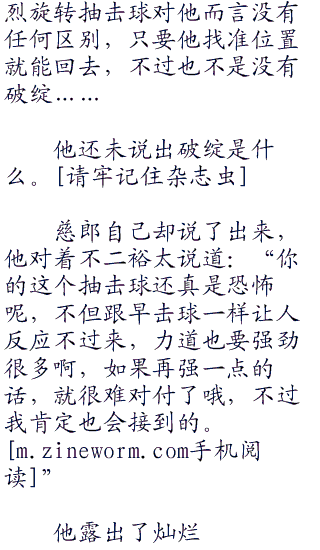 烈旋转抽击球对他而言没有
任何区别，只要他找准位置
就能回去，不过也不是没有
破绽……
他还未说出破绽是什
么。[请牢记住杂志虫]
慈郎自己却说了出来，
他对着不二裕太说道：“你
的这个抽击球还真是恐怖
呢，不但跟早击球一样让人
反应不过来，力道也要强劲
很多啊，如果再强一点的
话，就很难对付了哦，不过
我肯定也会接到的。
[m.zineworm.com手机阅
读]”
他露出了灿烂